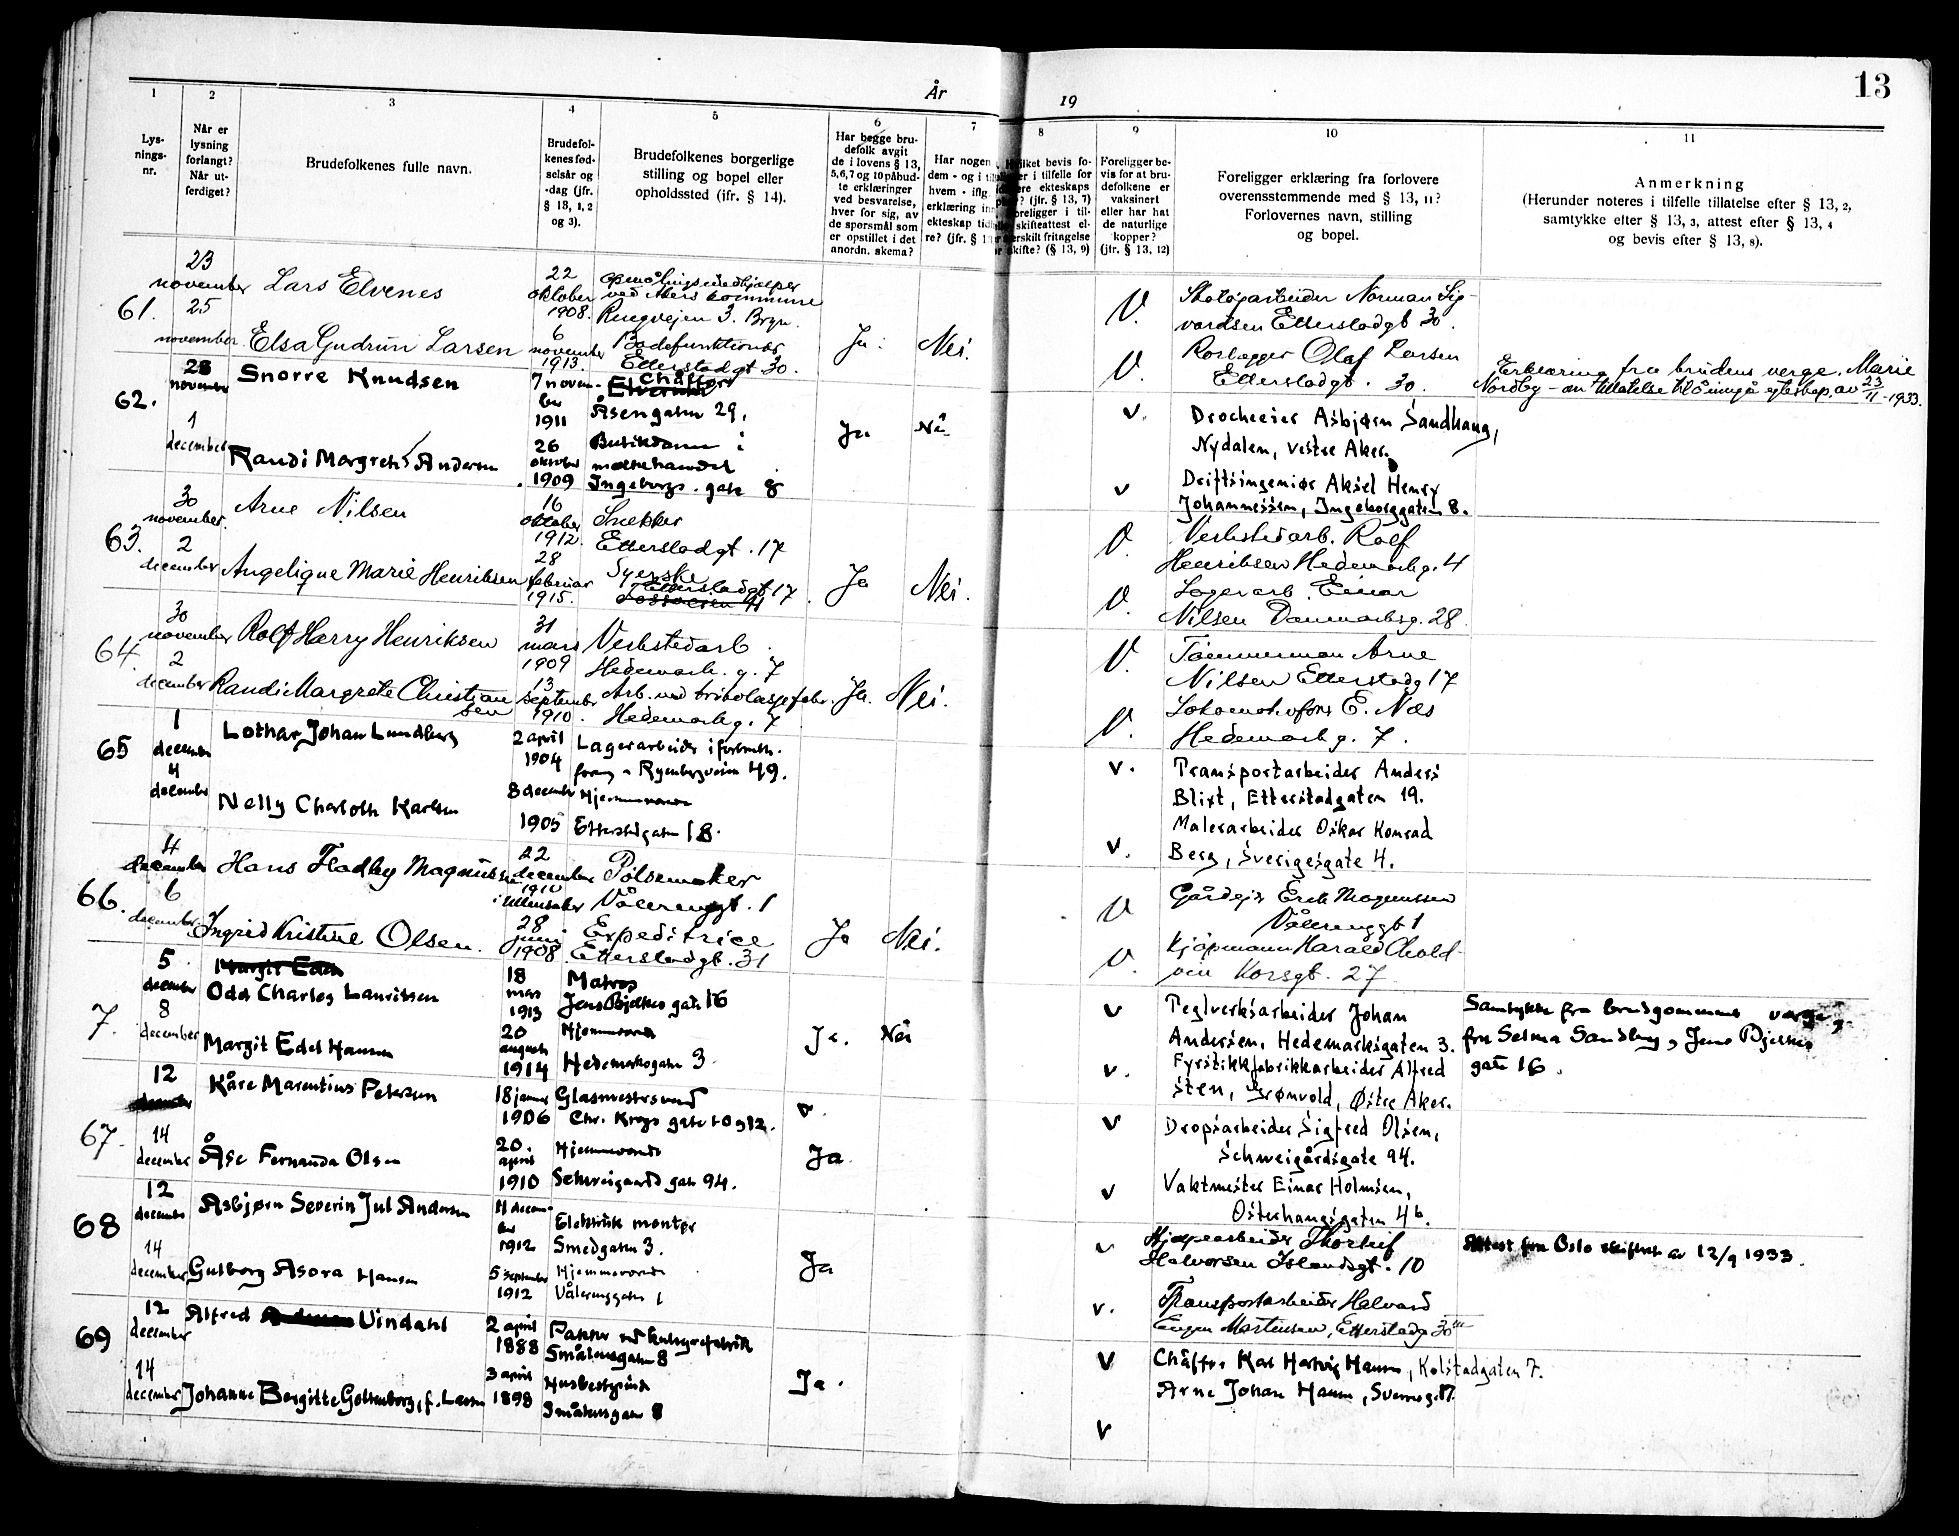 13
År
19
1
2
3
4
5
6
7
8
9
10
11
Lys-
nings-
nr.
Når er
lysning
forlangt?
Når ut-
ferdiget?
Brudefolkenes fulle navn.
Brudefol-
kenes fød-
selsår og
-dag (jfr.
§ 13, 1, 2
og 3).
Brudefolkenes borgerlige
stilling og bopel eller
opholdssted (ifr. § 14).
Har begge bru-
defolk avgit
de i lovens § 13,
5,6,7 og 10 påbud-
te erklæringer
ved besvarelse,
hver for sig, av
de spørsmål som
er opstillet i det
anordn. skema?
Har nogen
dem - og i
hvem - iflg.
erklæring
ekteskap
re? (jfr. §
bevis fo-
i tilfelle for
ekteskaps
(jfr. § 13, 7)
foreligger i til-
skifteattest el-
særskilt fritagelse
skifte? (§ 13, 9)
Foreligger be-
vis for at bru-
defolkene er
vaksinert
eller har hat
de naturlige
kopper?
(jfr. § 13, 12)
Foreligger erklæring fra forlovere
overensstemmende med § 13, 11?
Forlovernes navn, stilling
og bopel.
Anmerkning
(Herunder noteres i tilfelle tillatelse efter § 13, 2,
samtykke efter § 13, 3, attest efter § 13, 4
og bevis efter § 13, 8).
61.
23
november
25
november
Lars Elvenes
Elsa Gudrun Larsen
22
oktober
1908.
6
november
1913.
opmålingsmedhjælper
ved Akers kommune
Ringvejen 3. Bryn.
Badefunktionær
Etterstadgt 30.
Ja.
Nei.
V.
V.
Norman Sig-
vardsen Etterstadgt 30.
Olaf Larsen
Etterstadgt. 30.
Erklæring fra brudens verge, Marie
Nordby - om tillatelse til å inngå egteskap, av 23/11-1933.
62.
28
november
1
december
Snorre Knudsen
Randi Margreth Andersen
7 novem-
ber
1911
26
oktober
1909
Chåffør
Åsengaten 29.
Butikdame i
melkehandel
Ingeborgs. gate 8
Ja
Nei
v.
v
Drocheeier Asbjørn Sandhaug,
Nydalen, vestre Aker.
Driftsingeniør Aksel Henry
Johannessen, Ingeborggaten 8.
63.
30
november.
2
december
Arne Nilsen
Angelique Marie Henriksen
16
oktober
1912.
28
februar
1915.
Snekker
Etterstadgt. 17
Syerske
Etterstadgt 17
Ja
Nei.
V.
V.
Verkstedarb. Rolf
Henriksen Hedemarkg. 4
Lagerarb. Einar
Nilsen Danmarksg. 28
64.
30
november
2
december
Rolf Harry Henriksen
Randi Margrete Christian
sen
31
mars
1909
13
september
1910.
Verkstedarb.
Hedemark. g. 7
Arb. ved trikotasjefabr.
Hedemark g. 7
Ja.
Nei.
V.
V.
Tømmerman Arne
Nilsen Etterstadg 17
Lokomotivfører E. Næs
Hedemark g. 7.
65
1
december
4
december
Lothar Johan Lundberg
Nelly Charlotte Karlsen
2 april
1904
8 december
1905
Lagerarbeider i forbruks-
foren. Ryenbergveien 49.
Hjemmeværende
Etterstadgaten 18.
v.
v.
Transportarbeider Anders
Blixt, Etterstadgaten 19.
Malerarbeider Oskar Konrad
Berg, Sverigesgate 4.
66.
4
december
6
december
Hans Fladby Magnussen
Ingrid Kristine Olsen.
22
december
1910
i Ullensaker
28
juni
1908
Pølsemaker
Vålerenggt. 1
Expeditrice
Etterstadgt. 31
Ja
Nei.
V
V.
Gårdejer Erik Magnussen
Vålerenggt 1
Kjøpmann Harald Chold-
vin Korsgt. 27
7.
5
december
8
december
Margit Edel
Odd Charles Lauritsen
Margit Edel Hansen
18
mars
1913
20
august
1914
Matros
Jens Bjelkes gate 16
Hjemmeværende
Hedemarksgaten 3.
Ja.
Nei
v
v.
Teglverksarbeider Johan
Andersen, Hedemarksgaten 3.
Fyrstikkfabrikkarbeider Alfred
Sten, Grønvold, Østre Aker.
Samtykke fra brudgommens verge,
fru Selma Sandberg, Jens Bjelkes
gate 16.
67.
12
december
14
december
Kåre Marentius Petersen
Åse Fernanda Olsen
18 januar
1906
20.
april
1910
Glasmestersvend
Chr. Krogs gate 10 g 12.
Hjemmeværende
Schweigaards gate 94.
v.
Ja
v
v
Dropsarbeider Sigfred Olsen,
Schweigårdsgate 94.
Vaktmester Einar Holmsen,
Osterhausgaten 4b.
68
12
december
14
december
Asbjørn Severin Jul Andersen
Gudborg Asora Hansen
11 decem-
ber
1912
5 september
1912
Elektrisk montør
Smedgaten 3.
Hjemmeværende
Vålerenggaten 1
Ja
v
v.
Hjelpearbeider Thorleif
Halvorsen Islandsgt. 10
Transportarbeider Halvard
Eugen Martensen, Etterstadg 30 III
Attest fra Oslo skifteret av 12/9 1933.
69
12
december
14
december
Alfred Andersen Vindahl
Johanne Bergitte Goltenborg, f. Larsen
2 april
1888
3 april
1898
Smålensgaten 8
Husbestyrerinde
Smålensgaten 8
Ja.
v
v
Chåffør Karl Hartvig Hansen, Kolstadgaten 7.
Arne Johan Hansen, Sverresg. 17.